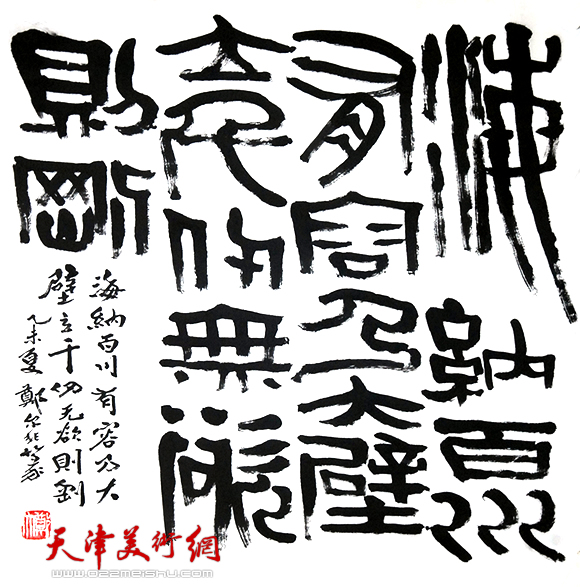 海納百川
有容乃大壁
立千仞無欲
則剛
海納百川有容乃大
壁立千仞无欲則剛
乙未夏鄭尔非篆
天津美術網
www.022meishu.com